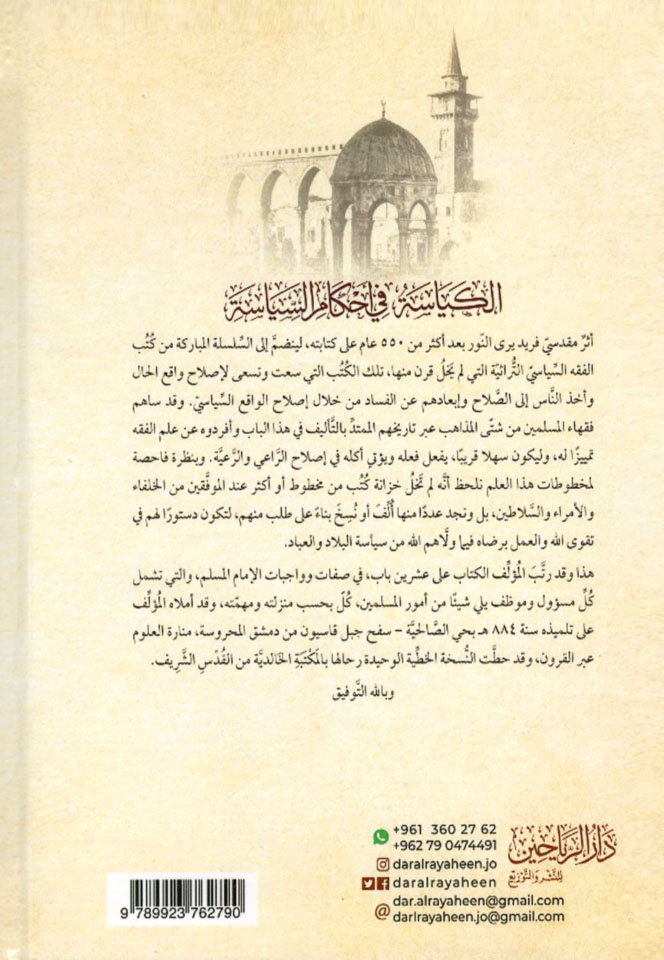 الكياسة في أحكام السياسة
أثرٌ مقدسيّ فريد يرى النّور بعد أكثر من ٥٥٠ عام على كتابته، لينضمَّ إلى السِّلسلة المباركة من كُتُب
الفقه السِّياسيّ التُّراثيّة التي لم يَخلُ قرن منها، تلك الكُتُب التي سعت وتسعى لإصلاح واقع الحال
وأخذ النَّاس إلى الصَّلاح وإبعادهم عن الفساد من خلال إصلاح الواقع السِّياسيّ. وقد ساهم
فقهاء المسلمين من شتّى المذاهب عبر تاريخهم الممتدِّ بالتَّأليف في هذا الباب وأفردوه عن علم الفقه
تمييزًا له، وليكون سهلا قريبًا، يفعل فعله ويؤتي أكله في إصلاح الرَّاعي والرَّعيَّة. وبنظرة فاحصة
لمخطوطات هذا العلم نلحظ أنَّه لم تَخلُ خزانة كُتُب من مخطوط أو أكثر عند الموفَّقين من الخلفاء
والأمراء والسَّلاطين، بل ونجد عددًا منها أُلِّفَ أو نُسِخَ بناءً على طلب منهم، لتكون دستورًا لهم في
تقوى الله والعمل برضاه فيما ولَّاهم الله من سياسة البلاد والعباد.
هذا وقد رتَّبَ المُؤلِّف الكتاب على عشرين باب، في صفات وواجبات الإمام المسلم، والتي تشمل
كُلَّ مسؤول وموظف يلي شيئًا من أمور المسلمين، كُلٌّ بحسب منزلته ومهمّته، وقد أملاه المُؤلِّف
على تلميذه سنة ٨٨٤ هـ بحي الصَّالحيَّة – سفح جبل قاسيون من دمشق المحروسة، منارة العلوم
عبر القرون، وقد حطَّت النُّسخة الخطِّية الوحيدة رحالها بالمَكْتَبَةِ الخَالديَّة من القُدْسِ الشَّريف.
وبالله التَّوفيق
دار الرياحين
للنشر والتوزيع
+961 360 27 62
+962 79 0474491
daralrayaheen.jo
daralrayaheen
dar.alrayaheen@gmail.com
darlrayaheen.jo@gmail.com
9 789923 762790